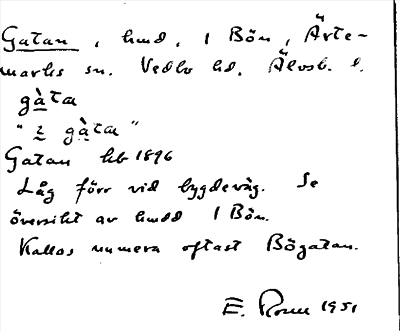 Gatan, hmd, 1 Bön, Ärte-
marks sn. Vedbo hd. Älvsb. l.
gàta
"2 gàta"
Gatan hb 1896
Låg förr vid bygdeväg. Se
översikt av hmdd 1 Bön.
Kallas numera oftast Bögatan.
E. Rosell 1951